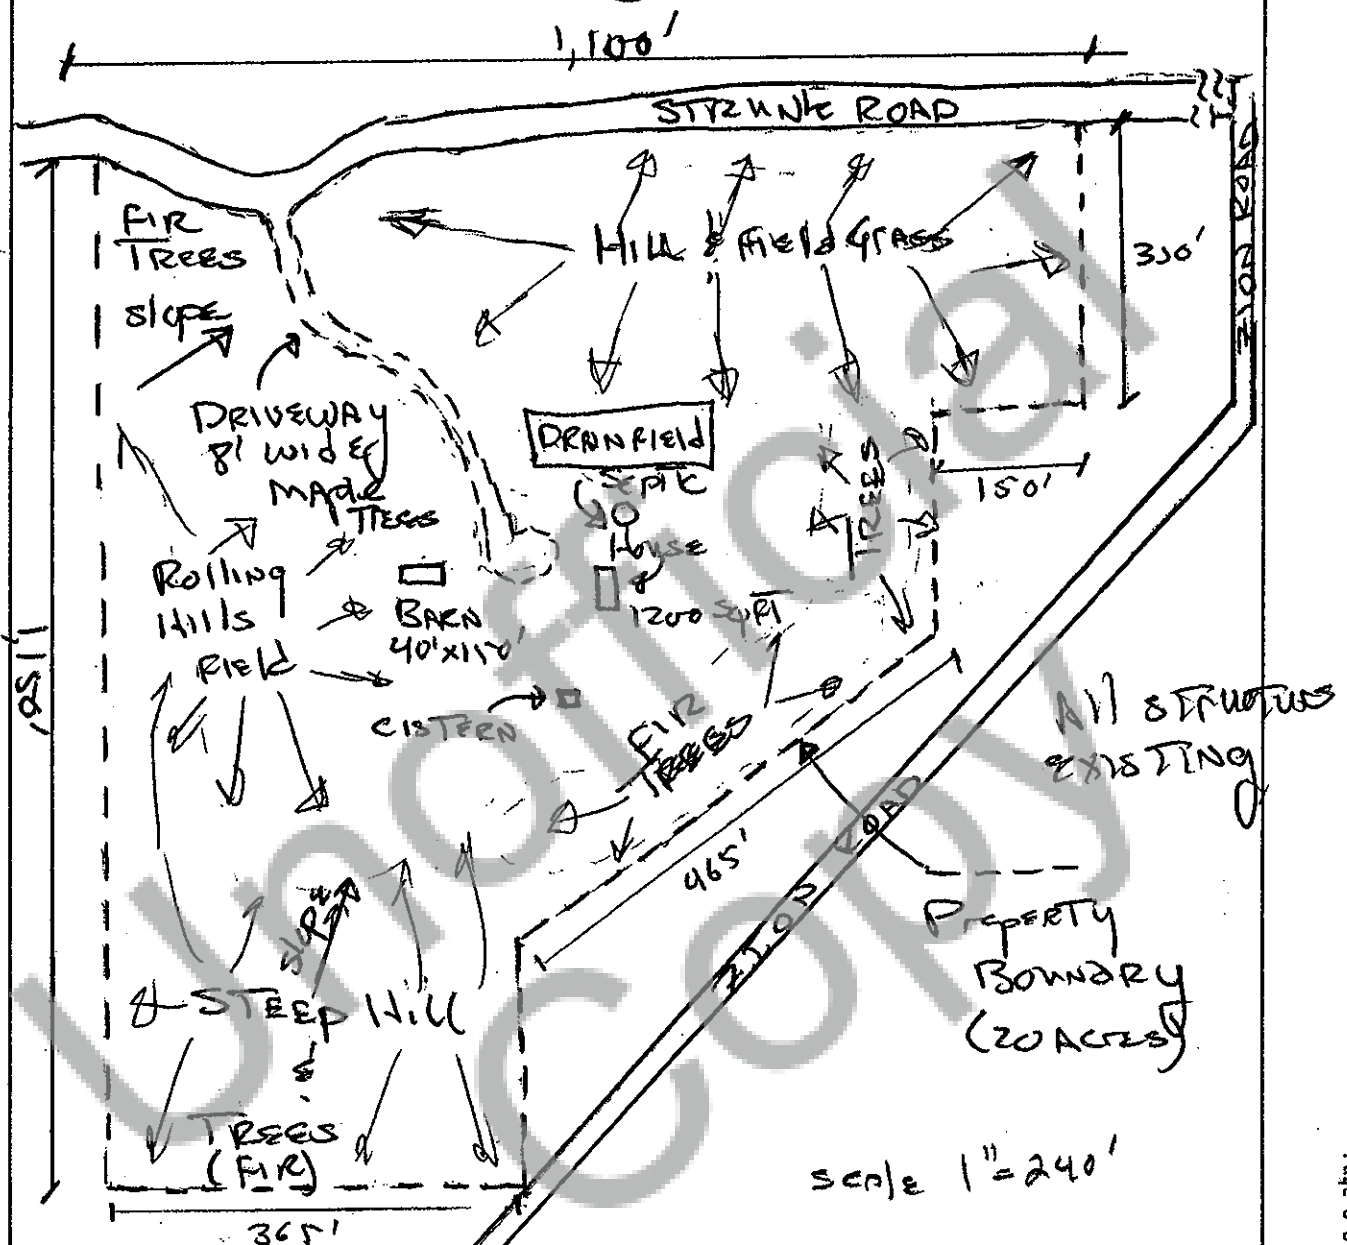 1,100'
STRUNK ROAD
ZION ROAD
FIR
TREES
slope
HILL & FIELD GRASS
DRIVEWAY
8' wide
MAPLE
TREES
DRAINFIELD
SEPTIC
House
1200 SQFT
TREES
150'
Rolling
Hills
FIELD
BARN
CISTERN
FIR
TREES
All structures
EXISTING
465'
ZION ROAD
Property
Boundary
(20 ACRES)
slope
STEEP HILL
TREES
(FIR)
365'
scale 1"=240'
Unofficial
Copy